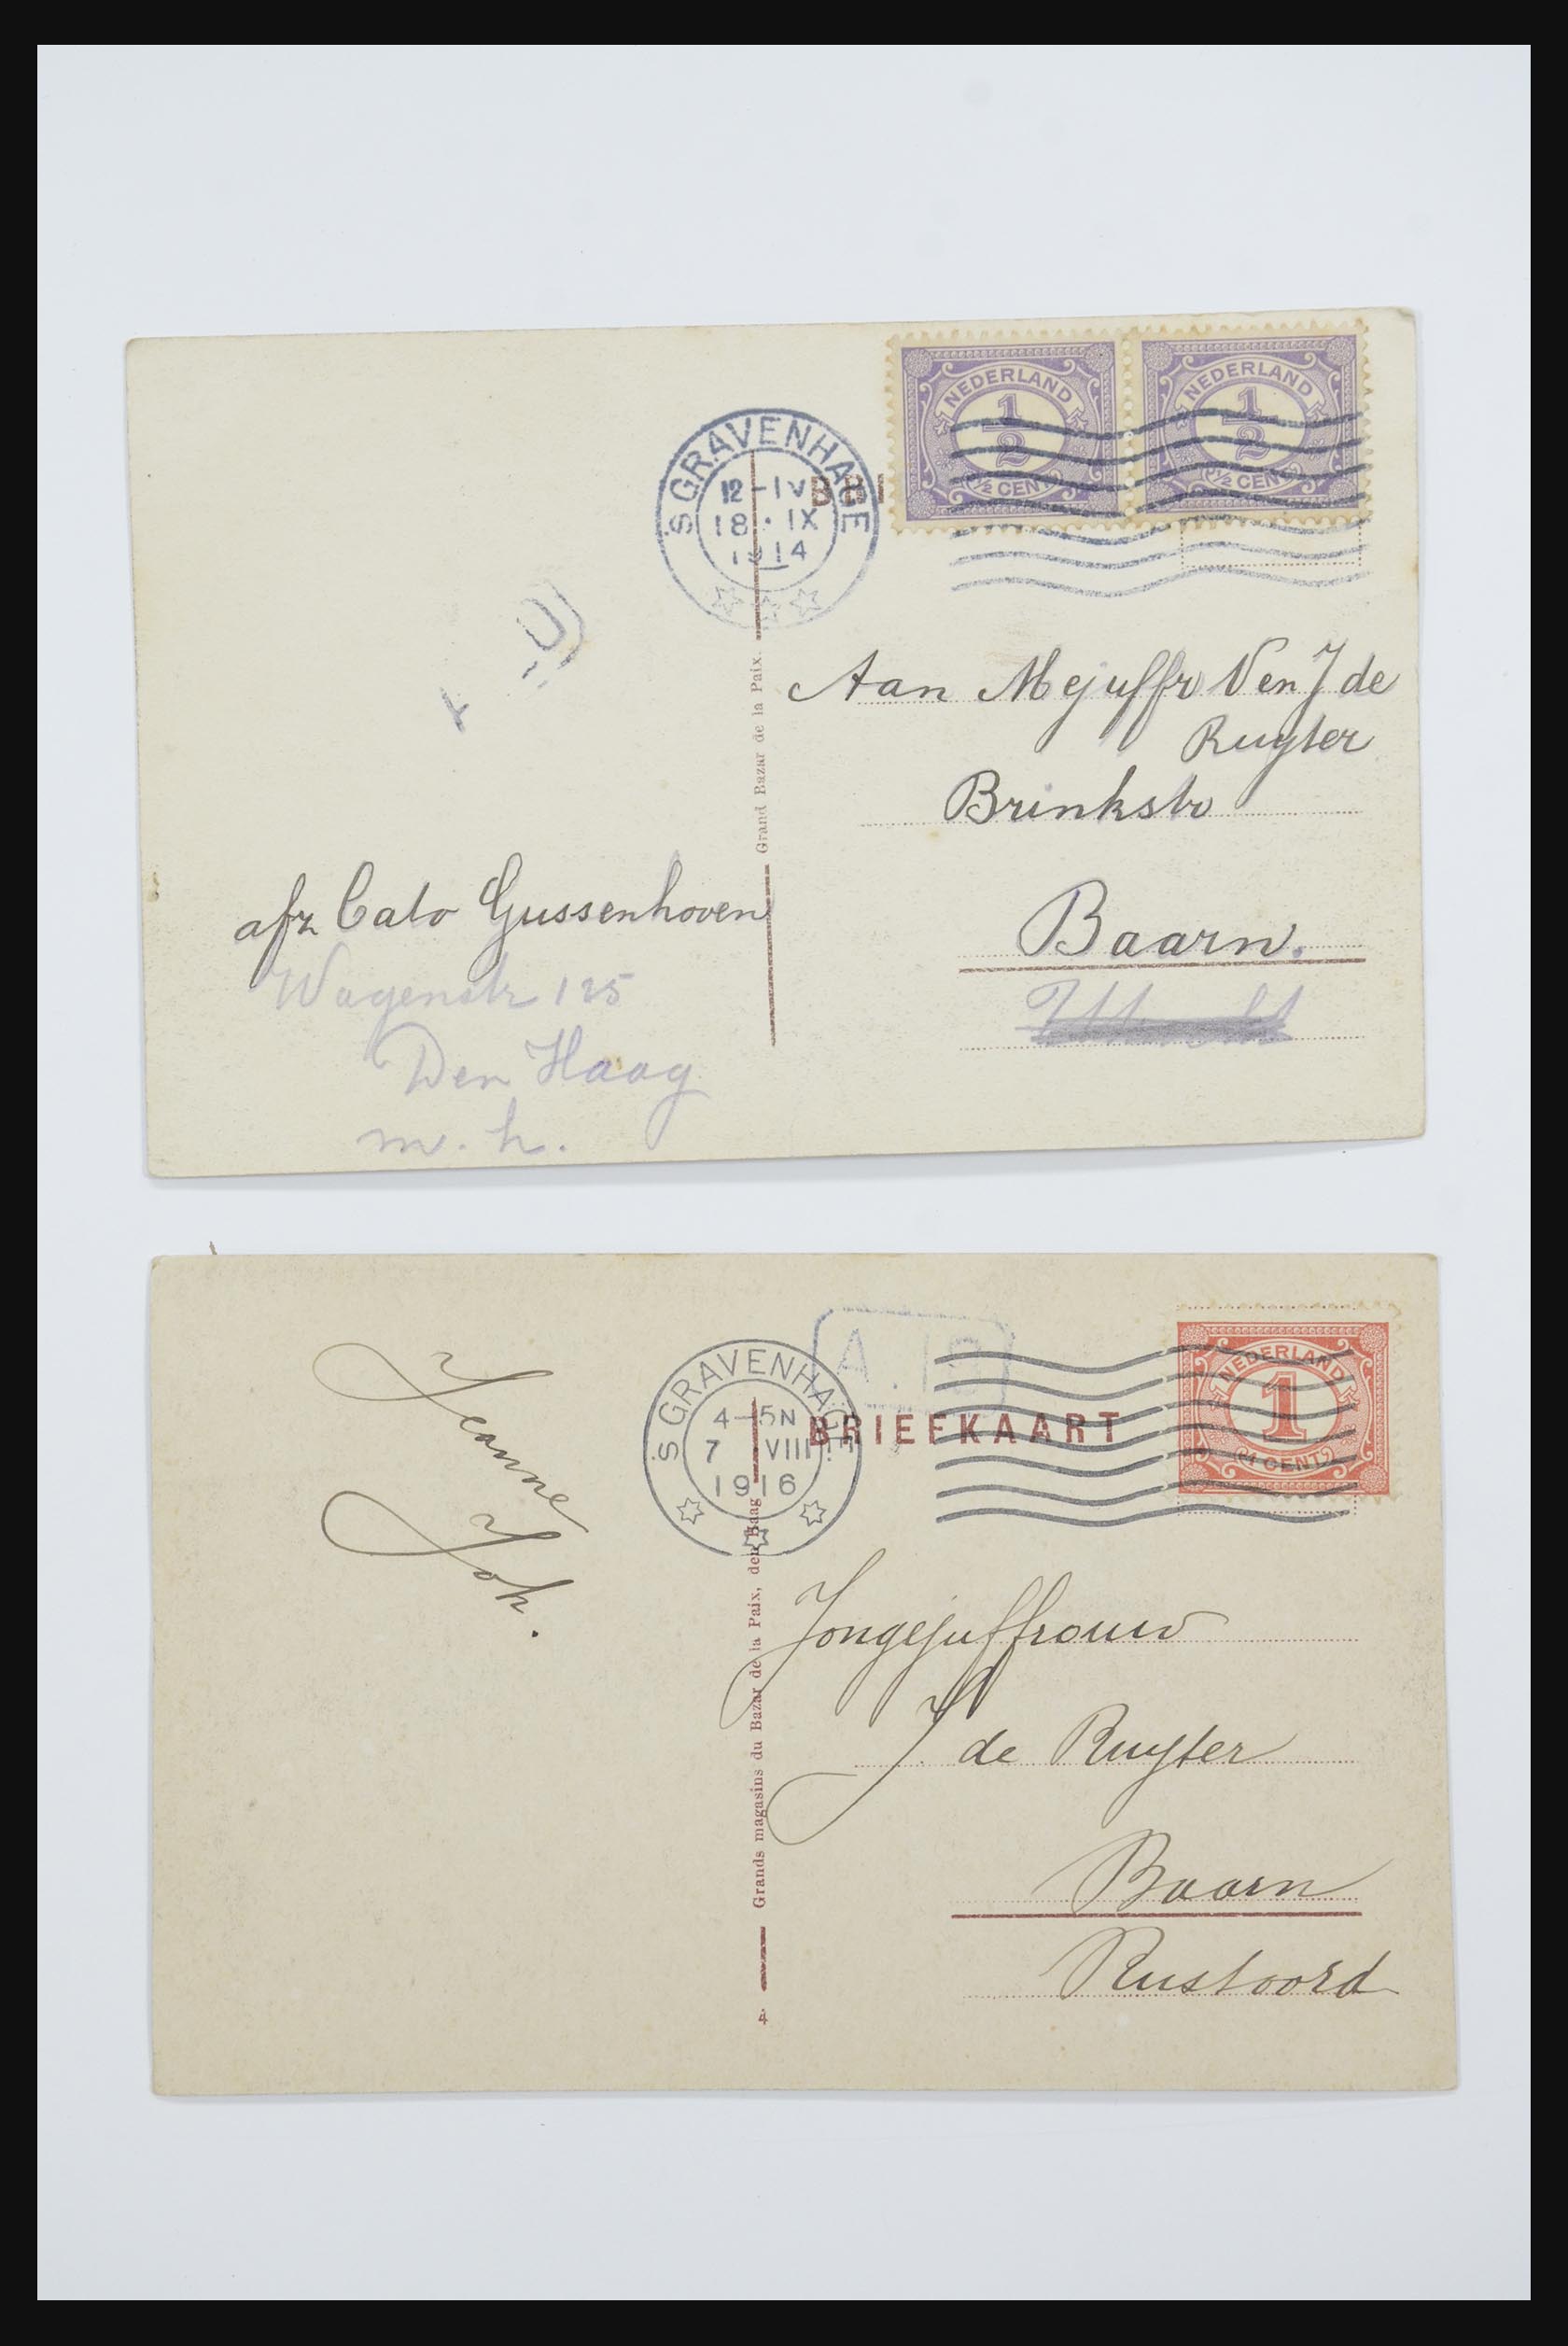 NEDERLAND
1/2
(½ CENT)
NEDERLAND
1/2
(½ CENT)
'S GRAVENHAGE
12-IV
18·IX
1914
BRI
Aan Mejuffr V en J de
Ruyter
Brinkstr
Baarn.
Grand Bazar de la Paix.
afz Cato Gussenhoven
Wagenstr 125
Den Haag
m. h.
NEDERLAND
1
(1 CENT)
'S GRAVENHAGE
4-5N
7 VIII
1916
BRIEFKAART
Jeanne
Joh.
Jongejuffrouw
J de Ruyter
Baarn
Rustoord
4 Grands magasins du Bazar de la Paix, den Haag